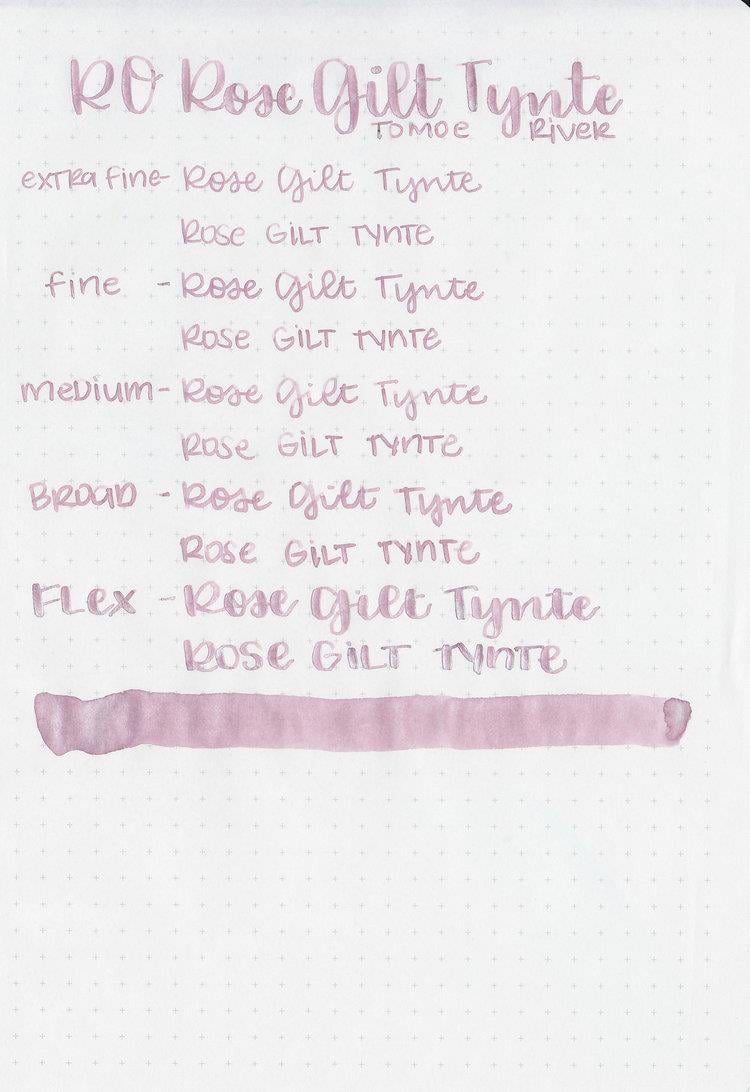 RO Rose Gilt Tynte
Tomoe River
extra fine- Rose Gilt Tynte
Rose Gilt Tynte
fine - Rose Gilt Tynte
Rose Gilt Tynte
medium- Rose Gilt Tynte
Rose Gilt Tynte
Broad - Rose Gilt Tynte
Rose Gilt Tynte
Flex - Rose Gilt Tynte
Rose Gilt Tynte